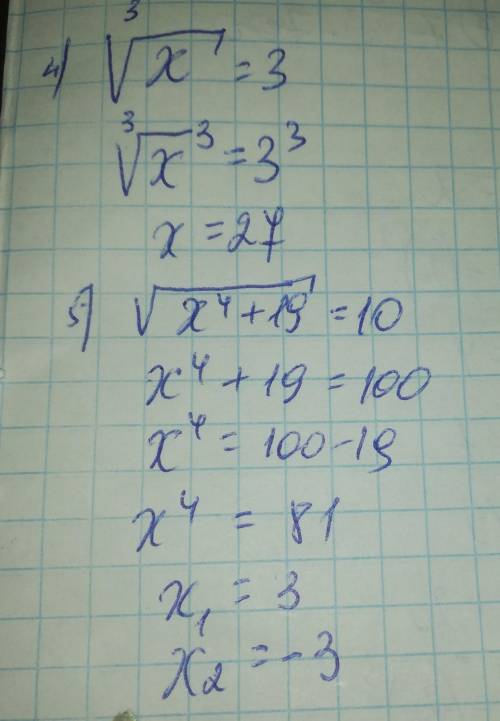 4) ∛x = 3
∛x³ = 3³
x = 27
5) √(x⁴ + 19) = 10
x⁴ + 19 = 100
x⁴ = 100 - 19
x⁴ = 81
x₁ = 3
x₂ = -3